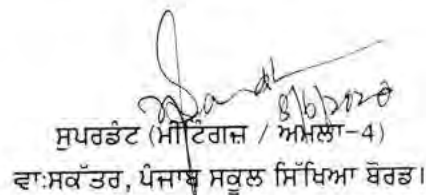 8/6/2020
ਸੁਪਰਡੰਟ (ਮੀਟਿੰਗਜ਼ / ਅਮਲਾ-4)
ਵਾ:ਸਕੱਤਰ, ਪੰਜਾਬ ਸਕੂਲ ਸਿੱਖਿਆ ਬੋਰਡ।